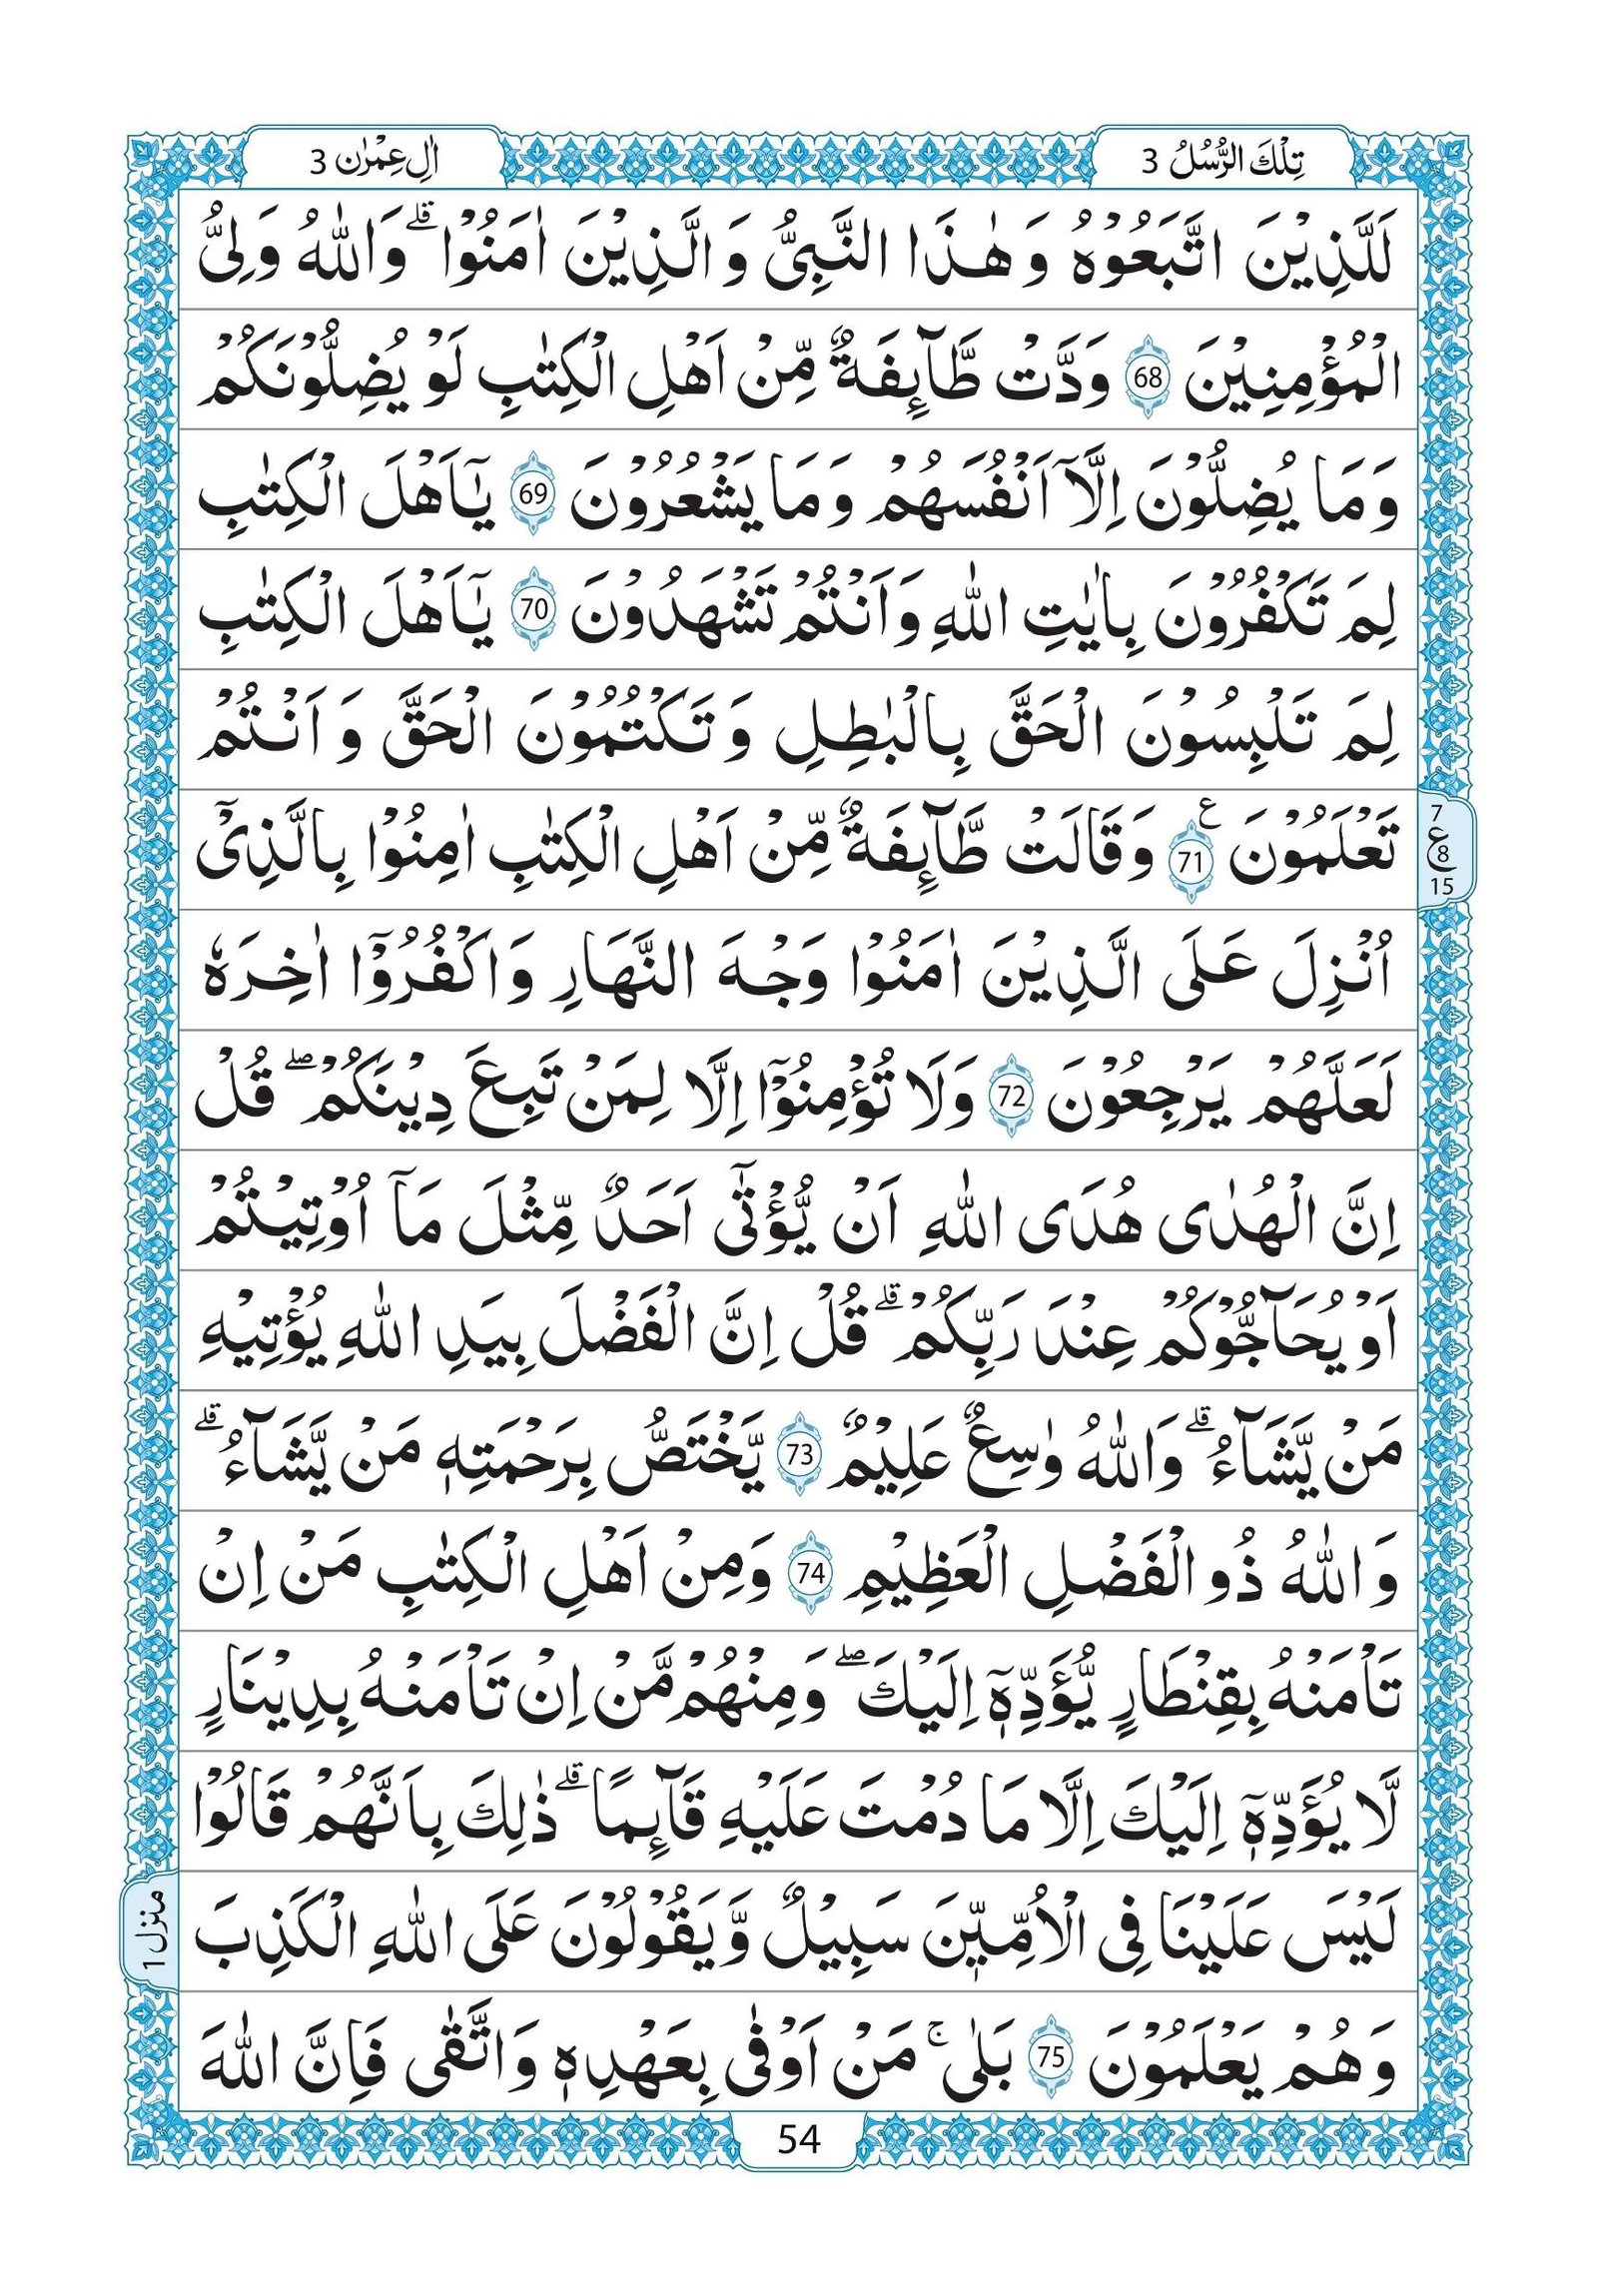 تِلْكَ الرُّسُلُ 3
اٰلِ عِمْرٰن 3
لَلَّذِيْنَ اتَّبَعُوْهُ وَ هٰذَا النَّبِىُّ وَ الَّذِيْنَ اٰمَنُوْا ؕ وَاللّٰهُ وَلِىُّ
الْمُؤْمِنِيْنَ 68 وَدَّتْ طَّآئِفَةٌ مِّنْ اَهْلِ الْكِتٰبِ لَوْ يُضِلُّوْنَكُمْ
وَمَا يُضِلُّوْنَ اِلَّاۤ اَنْفُسَهُمْ وَمَا يَشْعُرُوْنَ 69 يٰۤاَهْلَ الْكِتٰبِ
لِمَ تَكْفُرُوْنَ بِاٰيٰتِ اللّٰهِ وَاَنْتُمْ تَشْهَدُوْنَ 70 يٰۤاَهْلَ الْكِتٰبِ
لِمَ تَلْبِسُوْنَ الْحَقَّ بِالْبٰطِلِ وَتَكْتُمُوْنَ الْحَقَّ وَاَنْتُمْ
تَعْلَمُوْنَ ع 71 وَقَالَتْ طَّآئِفَةٌ مِّنْ اَهْلِ الْكِتٰبِ اٰمِنُوْا بِالَّذِىْۤ
7 ع 8 15
اُنْزِلَ عَلَى الَّذِيْنَ اٰمَنُوْا وَجْهَ النَّهَارِ وَاكْفُرُوْۤا اٰخِرَهٗ
لَعَلَّهُمْ يَرْجِعُوْنَ 72 وَلَا تُؤْمِنُوْۤا اِلَّا لِمَنْ تَبِعَ دِيْنَكُمْ ۖ قُلْ
اِنَّ الْهُدٰى هُدَى اللّٰهِ اَنْ يُّؤْتٰۤى اَحَدٌ مِّثْلَ مَاۤ اُوْتِيْتُمْ
اَوْ يُحَآجُّوْكُمْ عِنْدَ رَبِّكُمْ ۗ قُلْ اِنَّ الْفَضْلَ بِيَدِ اللّٰهِ يُؤْتِيْهِ
مَنْ يَّشَآءُ ۗ وَاللّٰهُ وٰسِعٌ عَلِيْمٌ 73 يَّخْتَصُّ بِرَحْمَتِهٖ مَنْ يَّشَآءُ ۗ
وَاللّٰهُ ذُو الْفَضْلِ الْعَظِيْمِ 74 وَمِنْ اَهْلِ الْكِتٰبِ مَنْ اِنْ
تَاْمَنْهُ بِقِنْطَارٍ يُّؤَدِّهٖۤ اِلَيْكَ ۖ وَمِنْهُمْ مَّنْ اِنْ تَاْمَنْهُ بِدِيْنَارٍ
لَّا يُؤَدِّهٖۤ اِلَيْكَ اِلَّا مَا دُمْتَ عَلَيْهِ قَآئِمًا ۗ ذٰلِكَ بِاَنَّهُمْ قَالُوْا
لَيْسَ عَلَيْنَا فِى الْاُمِّيّٖنَ سَبِيْلٌ وَّيَقُوْلُوْنَ عَلَى اللّٰهِ الْكَذِبَ
منزل 1
وَهُمْ يَعْلَمُوْنَ 75 بَلٰى ۚ مَنْ اَوْفٰى بِعَهْدِهٖ وَاتَّقٰى فَاِنَّ اللّٰهَ
54